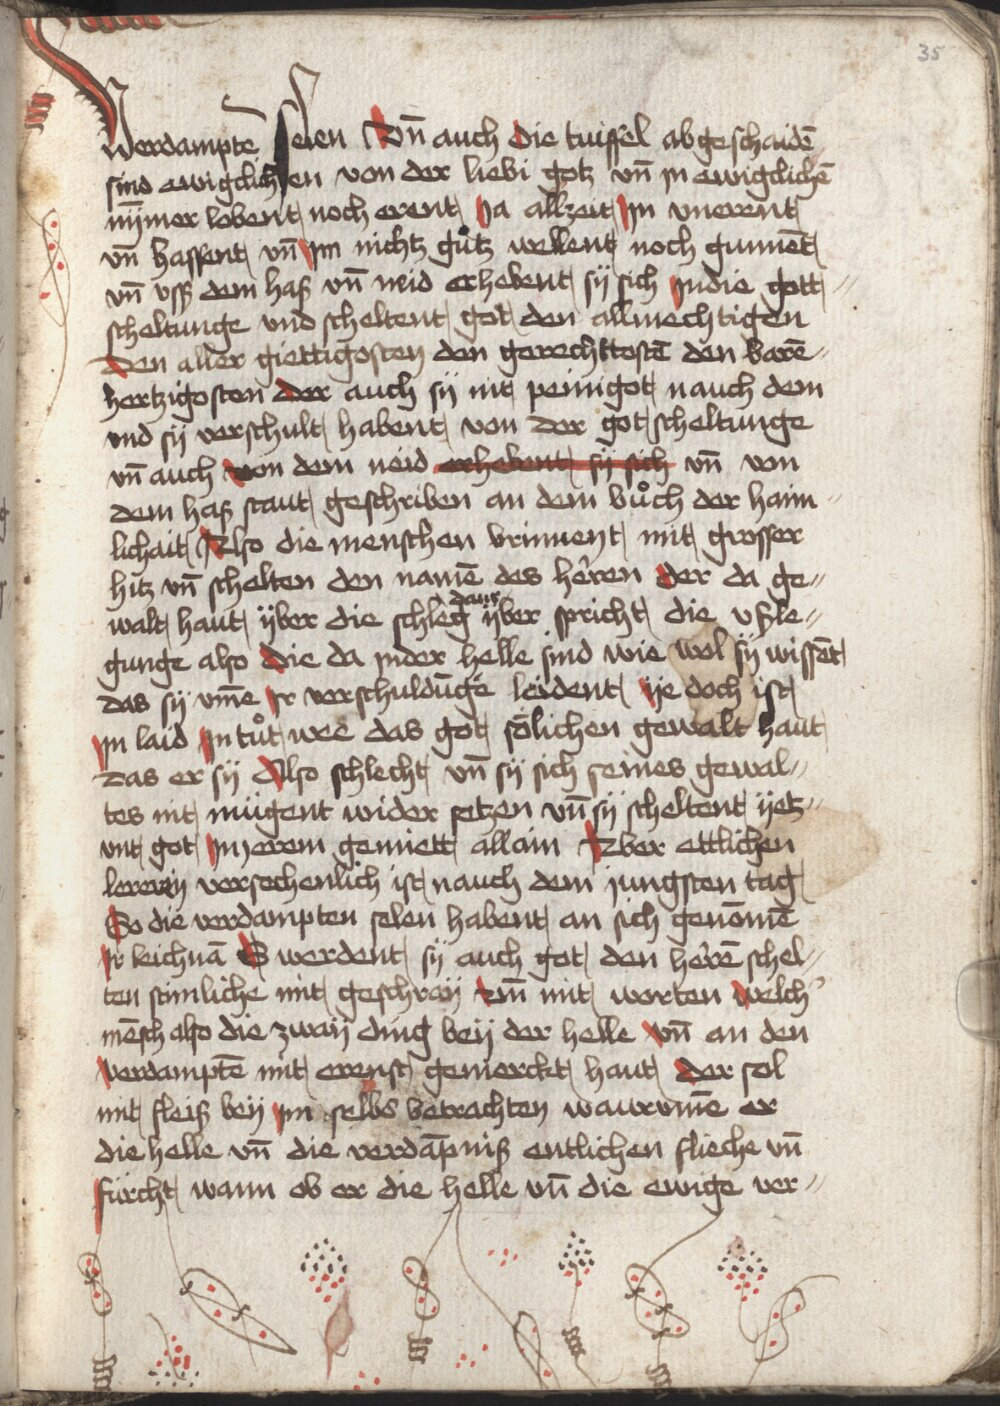 35
Verdampte selen Vn̄ auch die tuiffel abgeschaidē
sind ewigclichen von der liebi gotz vn̄ jn ewigclichē
nÿmer lobent noch erent Ja allzeit jn vnerent
vn̄ hassent vn̄ jm nichtz gůtz wellent noch gunnēt
vn̄ vss dem haß vn̄ neid erhebent sÿ sich jndie gott⸗
scheltunge vnd scheltent got den allmechtigen
den aller giettigosten den gerechttostē den barē⸗
hertzigosten der auch sÿ nit peinigot nauch dem
vnd sÿ verschult habent von der got scheltunge
vn̄ auch von dem neid erhebent sÿ sich vn̄ von
dem haß staut geschriben an dem bůch der haim⸗
lichait Also die menschen brinnent mit grosser
hitz vn̄ schelten den namē des herren der da ge⸗
walt haut ÿber die schleg daur ÿber spricht die vßle⸗
gunge also die da jnder helle sind wie wol sÿ wissēt
das sÿ vmē jr verschuldūge leident ÿe doch ist
jn laid jn tůt wee das got sölichen gewalt haut
das er sÿ Also schlecht vn̄ sÿ sich seines gewal⸗
tes nit mügent wider setzen vn̄ sÿ scheltent ÿetz⸗
unt got jn jerem gemiett allain Aber ettlichen
lerern versechenlich ist nauch dem jungsten tag
So die verdampten selen habent an sich genomē
jr leichnā S werdent sÿ auch got den herrē schel⸗
ten stimliche mit geschraÿ vn̄ mit worten welch
mēsch also die zwaÿ ding beÿ der helle vn̄ an den
verdamptē mit erenst gemerckt haut der sol
mit fleiß beÿ jm selbs betrachten waurumē er
die helle vn̄ die verdāpniß entlichen flieche vn̄
fürcht wann ob er die helle vn̄ die ewige ver⸗